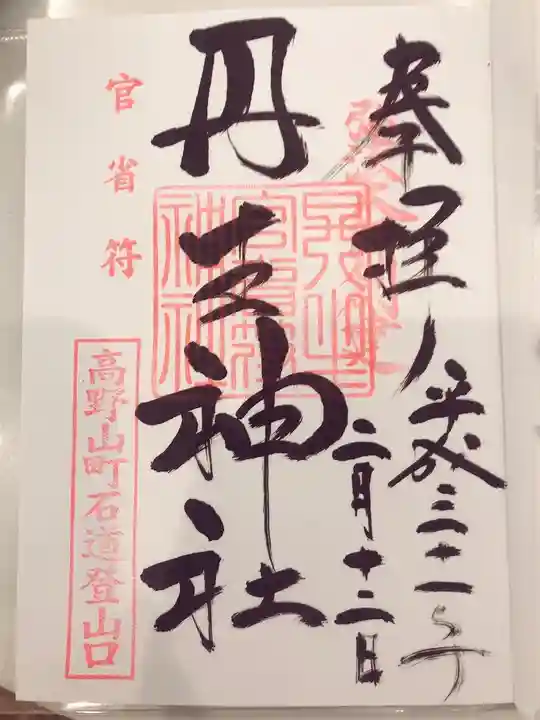 奉拝
平成三十一年
二月十二日
丹支神社
官省符
高野山町石道登山口